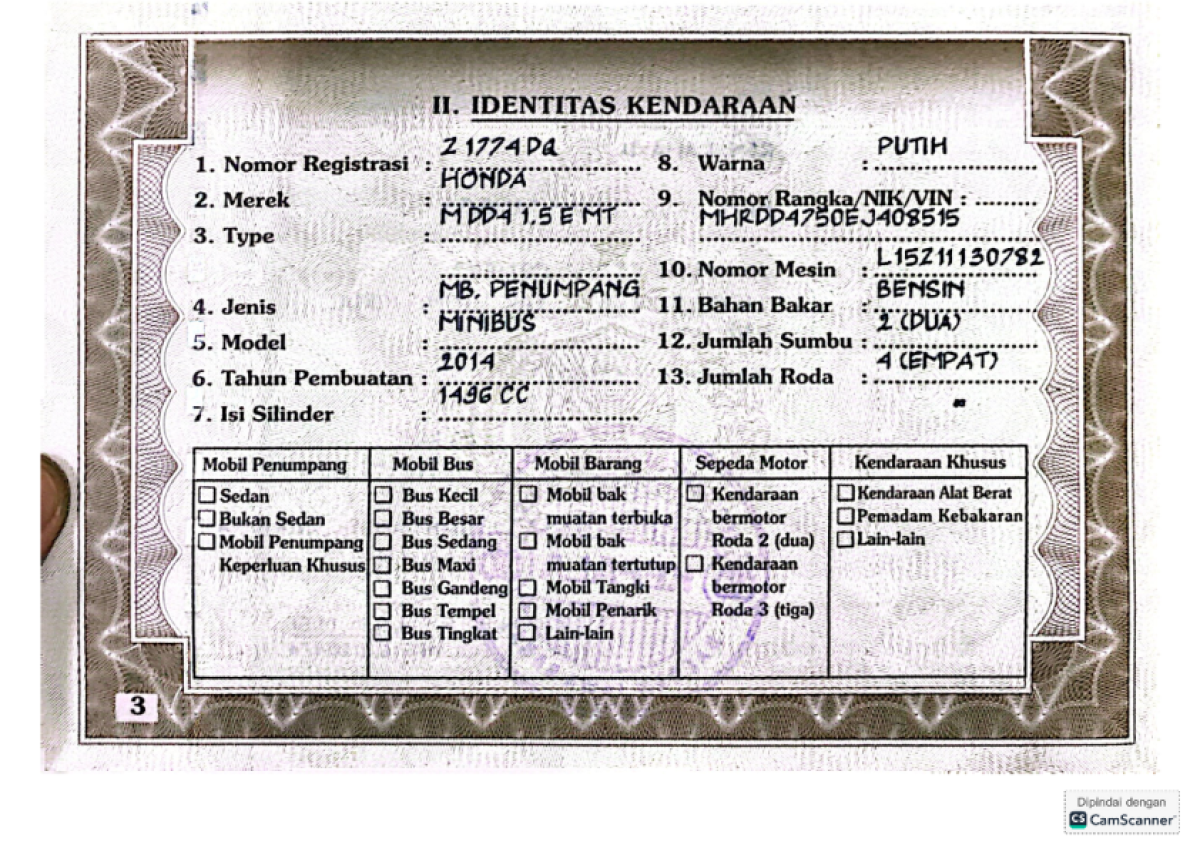 II. IDENTITAS KENDARAAN
1. Nomor Registrasi : Z 1774 DQ
2. Merek : HONDA
3. Type : M DD4 1,5 E MT
4. Jenis : MB. PENUMPANG
5. Model : MINIBUS
6. Tahun Pembuatan : 2014
7. Isi Silinder : 1496 CC
8. Warna : PUTIH
9. Nomor Rangka/NIK/VIN :
MHRDD4750EJ408515
10. Nomor Mesin : L15Z11130782
11. Bahan Bakar : BENSIN
12. Jumlah Sumbu : 2 (DUA)
13. Jumlah Roda : 4 (EMPAT)
Mobil Penumpang
Sedan
Bukan Sedan
Mobil Penumpang
Keperluan Khusus
Mobil Bus
Bus Kecil
Bus Besar
Bus Sedang
Bus Maxi
Bus Gandeng
Bus Tempel
Bus Tingkat
Mobil Barang
Mobil bak
muatan terbuka
Mobil bak
muatan tertutup
Mobil Tangki
Mobil Penarik
Lain-lain
Sepeda Motor
Kendaraan
bermotor
Roda 2 (dua)
Kendaraan
bermotor
Roda 3 (tiga)
Kendaraan Khusus
Kendaraan Alat Berat
Pemadam Kebakaran
Lain-lain
3
Dipindai dengan
CS CamScanner